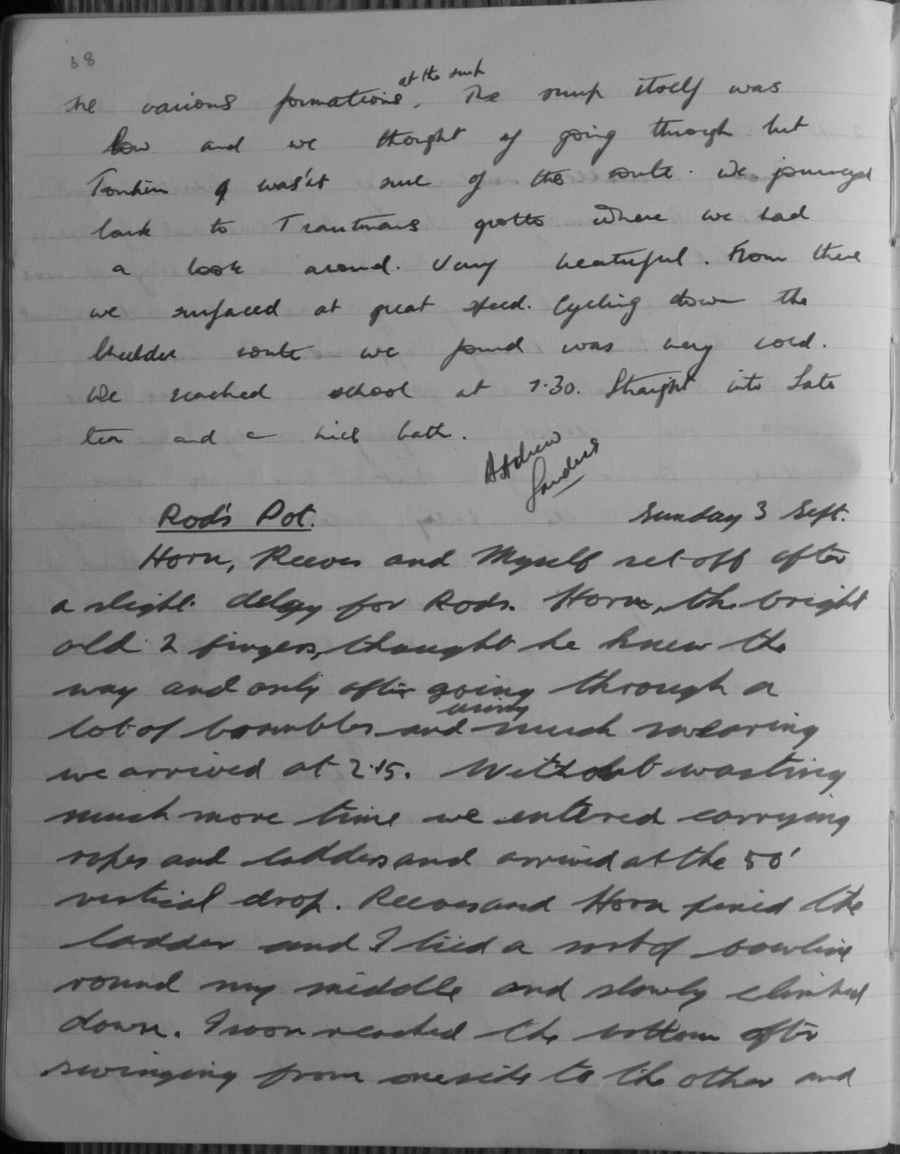 68
at the sump
the various formations. The sump itself was
low and we thought of going through but
wasn't sure of the route. We journeyed
back to Trautmans grotto where we had
a look around. Very beautiful. From there
we surfaced at great speed. Cycling down the
route we found was very cold.
We reached school at 7.30. Straight into late
tea and a bath.
Andrew
Sanders
Rod's Pot. Sunday 3 Sept.
Horn, Reeves and Myself set off after
a slight delay for Rods. Horn, the bright
old 2 fingers, thought he knew the
way and only after going through a
using
lot of brambles and much swearing
we arrived at 2.15. Without wasting
much more time we entered carrying
ropes and ladders and arrived at the 50'
vertical drop. Reeves and Horn fixed the
ladder and I tied a sort of bowline
round my middle and slowly climbed
down. I soon reached the bottom after
swinging from one side to the other and